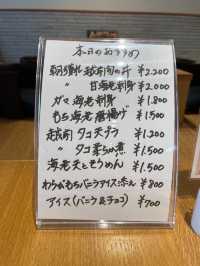 本日のおすすめ
朝獲れ越前旬の丼 ¥2,200
〃 甘海老刺身 ¥2,000
ガマ海老刺身 ¥1,800
もち海老唐揚げ ¥1,500
越前タコ天プラ ¥1,200
〃 タコ柔らか煮 ¥1,500
海老天とそうめん ¥1,500
わらびもちバニラアイス添え ¥800
アイス(バニラ&チョコ) ¥700